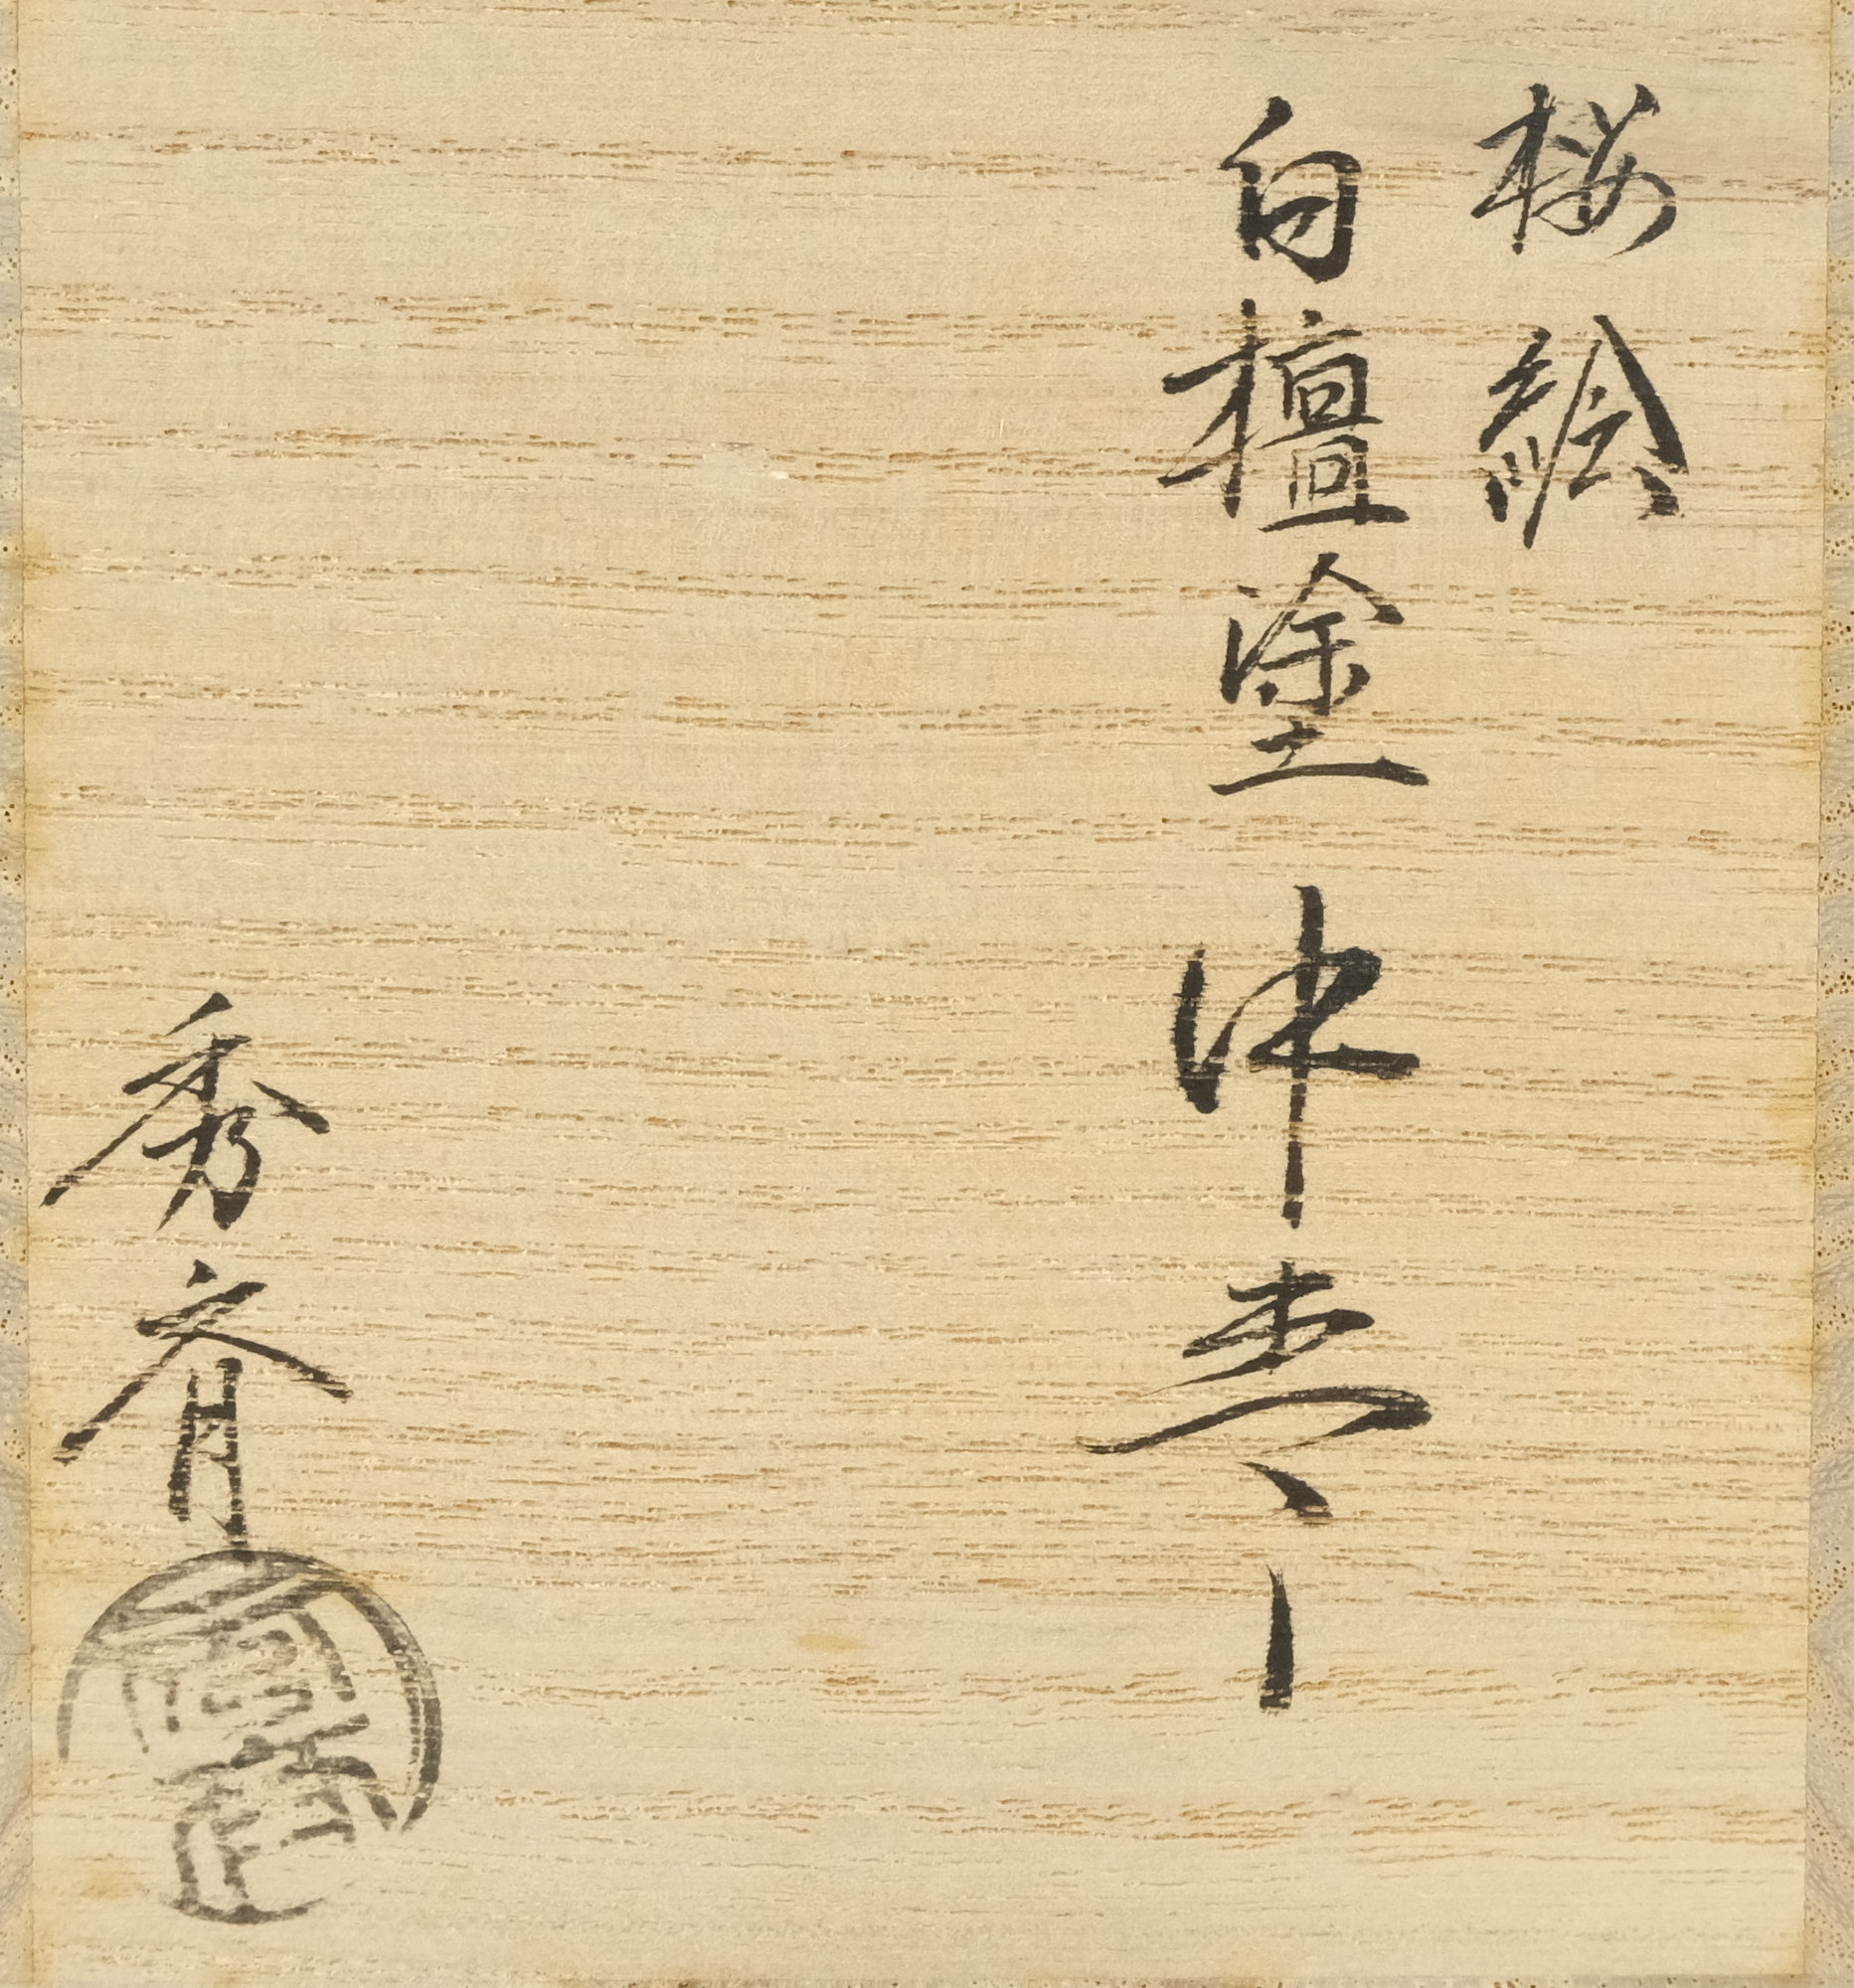 桜絵
白檀塗 中棗
秀斉